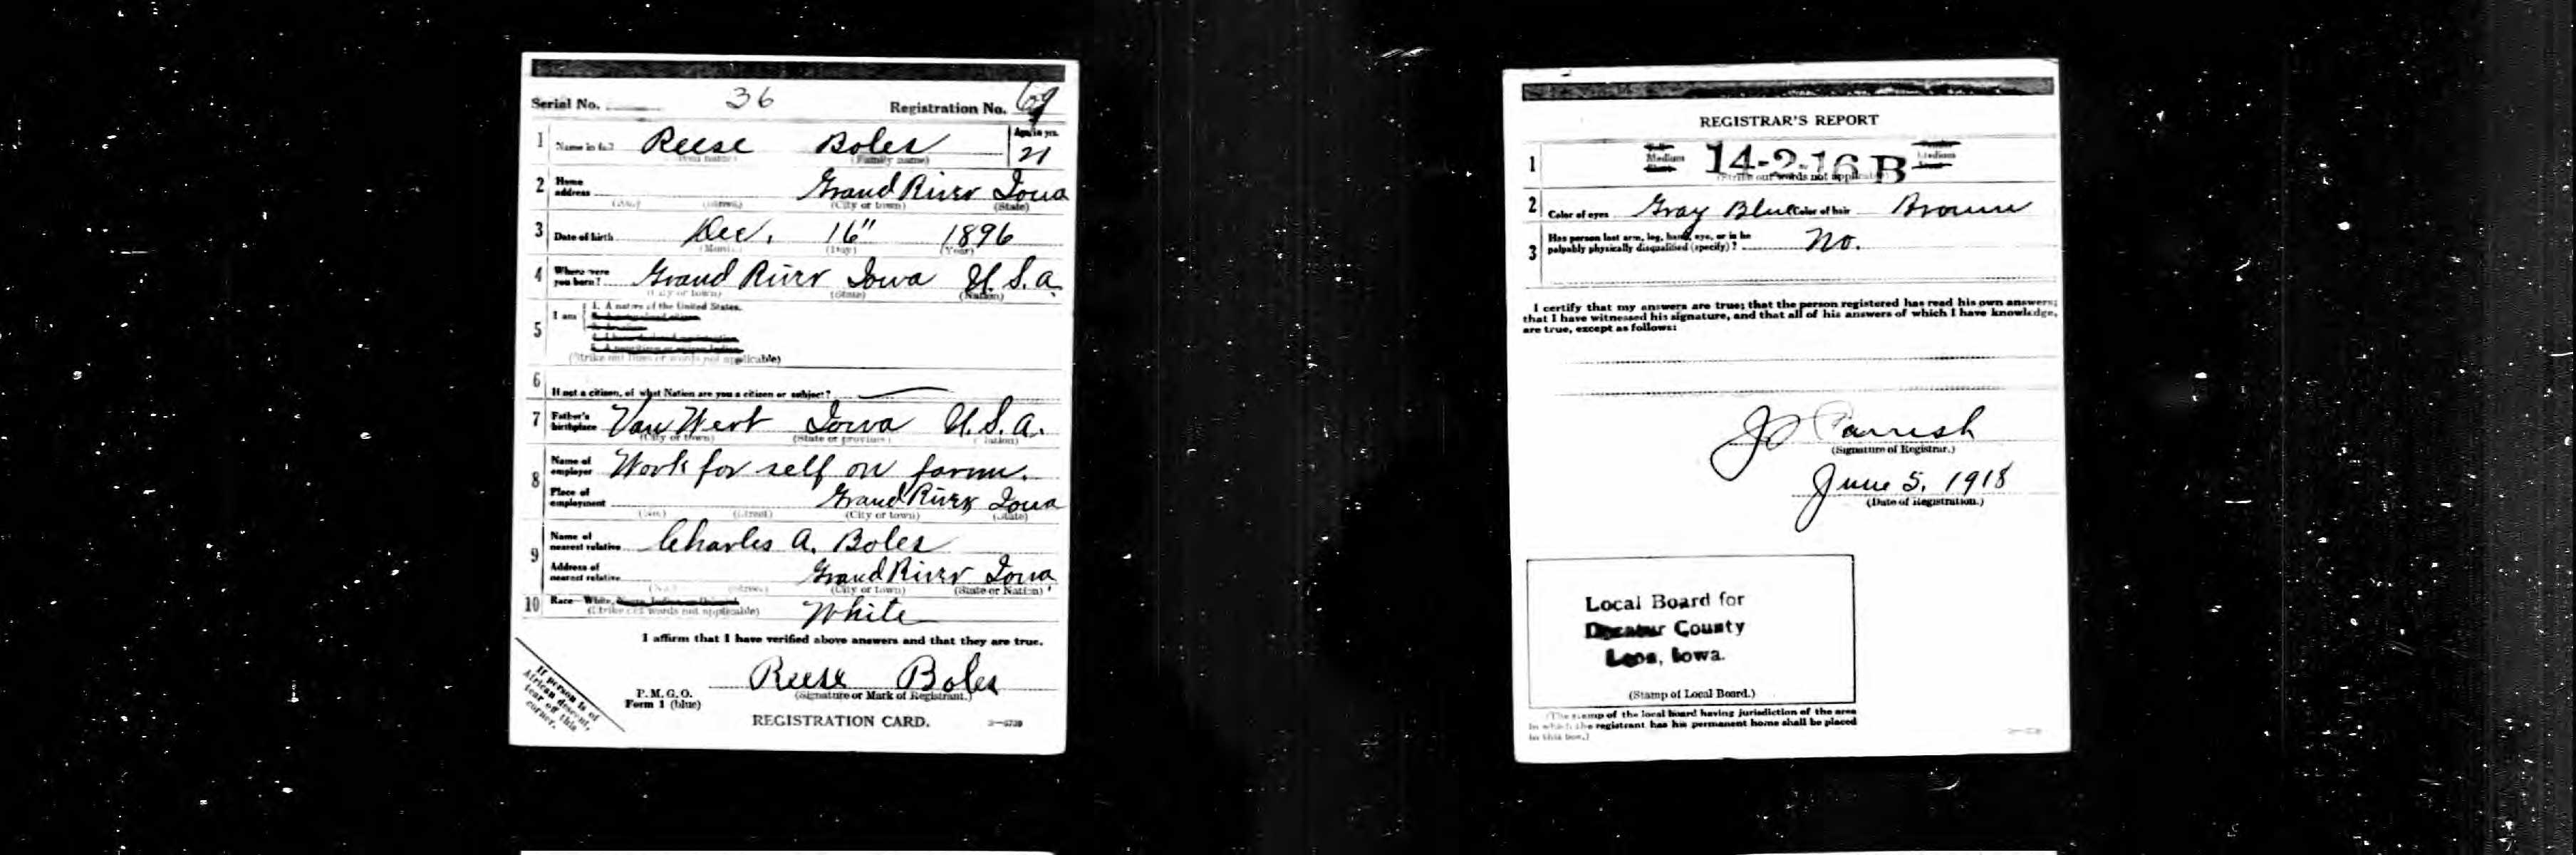 Serial No. 36 Registration No. 69
1 Name in full Reese Boles Age, in yrs. 21
(Given name) (Family name)
2 Home address Grand River Iowa
(No.) (Street) (City or town) (State)
3 Date of birth Dec. 16" 1896
(Month) (Day) (Year)
4 Where were you born? Grand River Iowa U.S.A.
(City or town) (State) (Nation)
5 I am 1. A native of the United States.
(Strike out lines or words not applicable)
6 If not a citizen, of what Nation are you a citizen or subject?
7 Father's birthplace Van Wert Iowa U.S.A.
(City or town) (State or province) (Nation)
8 Name of employer Work for self on farm.
Place of employment Grand River Iowa
(No.) (Street) (City or town) (State)
9 Name of nearest relative Charles A. Boles
Address of nearest relative Grand River Iowa
(No.) (Street) (City or town) (State or Nation)
10 Race—White, White
(Strike out words not applicable)
I affirm that I have verified above answers and that they are true.
Reese Boles
(Signature or Mark of Registrant.)
P. M. G. O.
Form 1 (blue)
REGISTRATION CARD.
If person is of
African descent,
tear off this
corner.
REGISTRAR'S REPORT
1 Medium 14-2-16 B Medium
(Strike out words not applicable)
2 Color of eyes Gray Blue Color of hair Brown
3 Has person lost arm, leg, hand, eye, or is he
palpably physically disqualified (specify)? No.
I certify that my answers are true; that the person registered has read his own answers;
that I have witnessed his signature, and that all of his answers of which I have knowledge,
are true, except as follows:
Parrish
(Signature of Registrar.)
June 5, 1918
(Date of Registration.)
Local Board for
Decatur County
Leon, Iowa.
(Stamp of Local Board.)
(The stamp of the local board having jurisdiction of the area
in which the registrant has his permanent home shall be placed
in this box.)